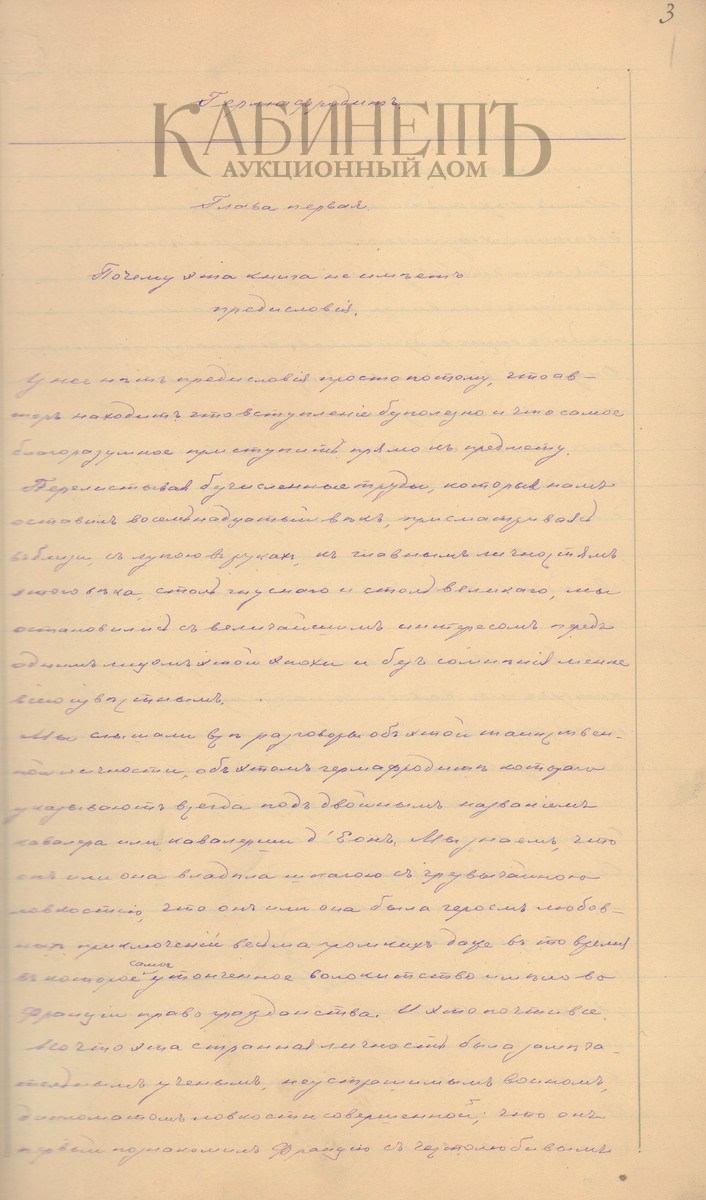 3
Гермафродитъ.
КАБИНЕТЪ
АУКЦИОННЫЙ ДОМ
Глава первая.
Почему эта книга не имѣетъ
предисловія.
У нее нѣтъ предисловія просто потому, что ав-
торъ находитъ что вступленіе безполезно и что самое
благоразумное приступить прямо къ предмету.
Перелистывая безчисленные труды, которыя намъ
оставилъ восемнадцатый вѣкъ, присматриваясь
вблизи, съ лупою въ рукахъ, къ главнымъ личностямъ
этого вѣка, столь гнуснаго и столь великаго, мы
остановились съ величайшимъ интересомъ передъ
однимъ лицемъ этой эпохи и безъ сомнѣнія менѣе
всего извѣстнымъ.
Мы слышали всѣ разговоры объ этой таинствен-
ной личности, объ этомъ гермафродитѣ котораго
указываютъ всегда подъ двойнымъ названіемъ
кавалера или кавалерши д'Еонъ. Мы знаемъ, что
онъ или она владѣла шпагою съ чрезвычайною
ловкостію, что онъ или она была героемъ любов-
ныхъ приключеній весьма громкихъ даже въ то время
въ которое самое утонченное волокитство имѣло во
Франціи право гражданства. И это почти все.
Но что эта странная личность была замѣча-
тельнымъ ученымъ, неустрашимымъ воиномъ,
дипломатомъ ловкости совершенной; что онъ
первый познакомилъ Францію съ честолюбивымъ